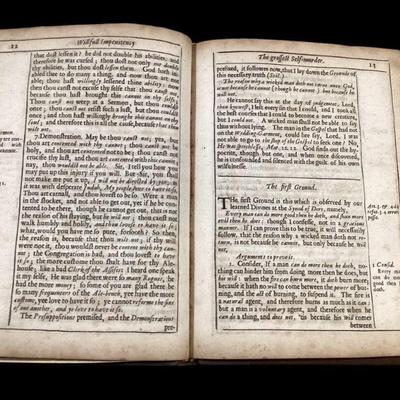 22
Willfull Impenitency
that dost lessen it? he did not double his abilities, and
therefore he was cursed; thou dost not only not double
thy abilities, but thou dost lessen them. God hath in-
abled thee to do many a thing, and now thou art not
able; thou hast willingly lessened thine ability; nay,
then thou canst not excuse thy selfe that thou canst not,
because thou hast brought this cannot in thy selfe,
Thou canst not weep at a Sermon, but thou couldst
once; thou canst not resist such a lust, but thou couldst
once; and thou hast willingly brought this cannot on thy
selfe; and therefore this is still the cause that thou
wilt not.
7. Demonstration. May be thou canst not; yea, but
thou art contented with thy cannot; thou canst not be
holy, and thou art contented not to be; thou canst not
crucifie thy lust, and thou art content with this cannot;
nay, thou wouldst not be able. Sir, I tell you how you
may put up this injury if you will. But Sir, you shall
not make me put it up,
it was with desperate Judah, My people love to have these
Thou art contented to be so; they that have a man
in the stocke, and not able to get out, yet if he be con-
tented to be there, though he cannot get out, that is not
the reason of his staying, but he will not; thou canst not
walk humbly and holily, and thou lovest to have it so;
what, would you have me so pure, forsooth? So then,
the reason is, because that thou wilt not; if thy will
were not it, thou wouldst never be content with thy can-
not; the Congregation is bad, and thou lovest to have
it so; the same customes still thou must have for thy Ale-
house; like a bad Clerk of the Assises; I heard one speak
my selfe, he was glad there were so many Rogues, he
had the more money; so some of you are glad there be
so many frequenters of the Ale-bench, yee have the more
custome, yee love to have it so; ye cannot reforme the sins
of one another, and ye love to have it so.
The Presuppositions premised, and the Demonstrations
pre-
The grossest Selfe-murder.
23
prefixed, it followes now, that I lay down the Grounds of
this necessary truth (Soil.)
The reason why a wicked man doth not turne unto God, it
is not because he cannot (though he cannot) but because he will
not.
He cannot say at the day of judgement, Lord,
thou knowest I did what I could, and I took
the best courses that I could to become a new creature,
but I could not. A wicked man shall not be able to
say thus before God. The man in the Gospel that had not
on the Wedding-Garment, could not say, Lord, I was
not able to go to the shop of the Gospel to seek one? No,
He was speechlesse, Mat. 22. 12. God finds out the hy-
pocrite, though but one, and when once discovered
he is confounded and silenced with the guilt of his own
wilfulnesse.
The first Ground.
The first Ground is this which is observed by our
learned Divines at the Synod of Dort, namely,
Every man can do more good then he doth, and shun more
evill then he does: though I confesse, not in a saving
manner: If I can prove this to be true, it will necessarily
follow, that the reason why a wicked man doth not re-
turn, is not because he cannot, but only because he will
not.
Arguments to prove it.
1. Consider, If a man can do more then he doth, no-
thing can hinder him from doing more then he does, but
his will: when the fire can burn more, it doth burn more,
because it hath no will to come between the power of bur-
ning, and the act of burning, to suspend it. The fire is
a natural agent, and therefore burns as much as it can;
but a man is a voluntary agent, and therefore when he
can do a thing, and does not, 'tis because his will comes
between
1 Consid.
Every man
can do more
good then he
doth.